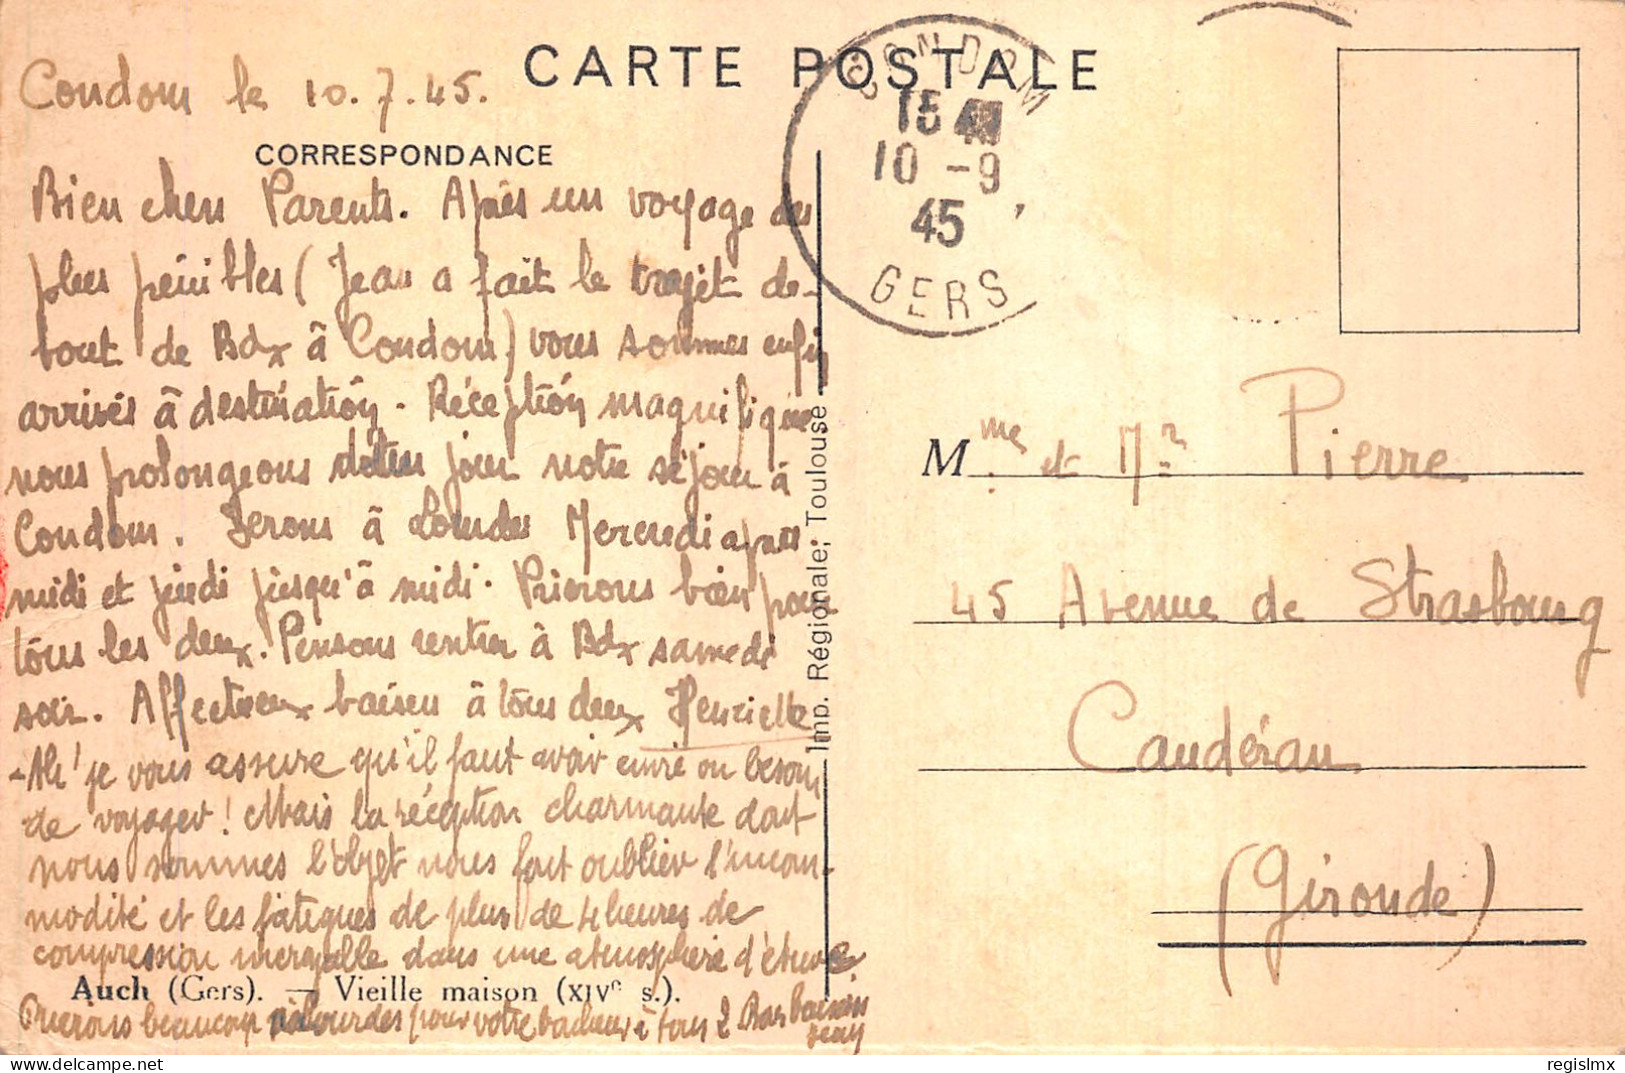 CARTE POSTALE
Condom le 10.7.45.
CORRESPONDANCE
Bien chers Parents. Après un voyage des
plus pénibles (Jean a fait le trajet de-
bout de Bdx à Condom) vous sommes enfin
arrivés à destination. Réception magnifique
nous prolongeons d'un jour notre séjour à
Condom. Serons à Lourdes Mercredi après
midi et jeudi jusqu'à midi. Prierons bien pour
tous les deux. Pensons rentrer à Bdx samedi
soir. Affectueux baisers à tous deux Henriette
- Ah! je vous assure qu'il faut avoir envie ou besoin
de voyager! Mais la réception charmante dont
nous sommes l'objet nous fait oublier l'incom-
modité et les fatigues de plus de 4 heures de
compression incroyable dans une atmosphère d'étuve.
Auch (Gers). — Vieille maison (XIVe s.).
Prierons beaucoup à Lourdes pour votre bonheur à tous 2 Bons baisers
Jean
Imp. Régionale, Toulouse
CONDOM
15
10 -9
45
GERS
M me et Mr Pierre
45 Avenue de Strasbourg
Caudéran
(Gironde)
regislmx